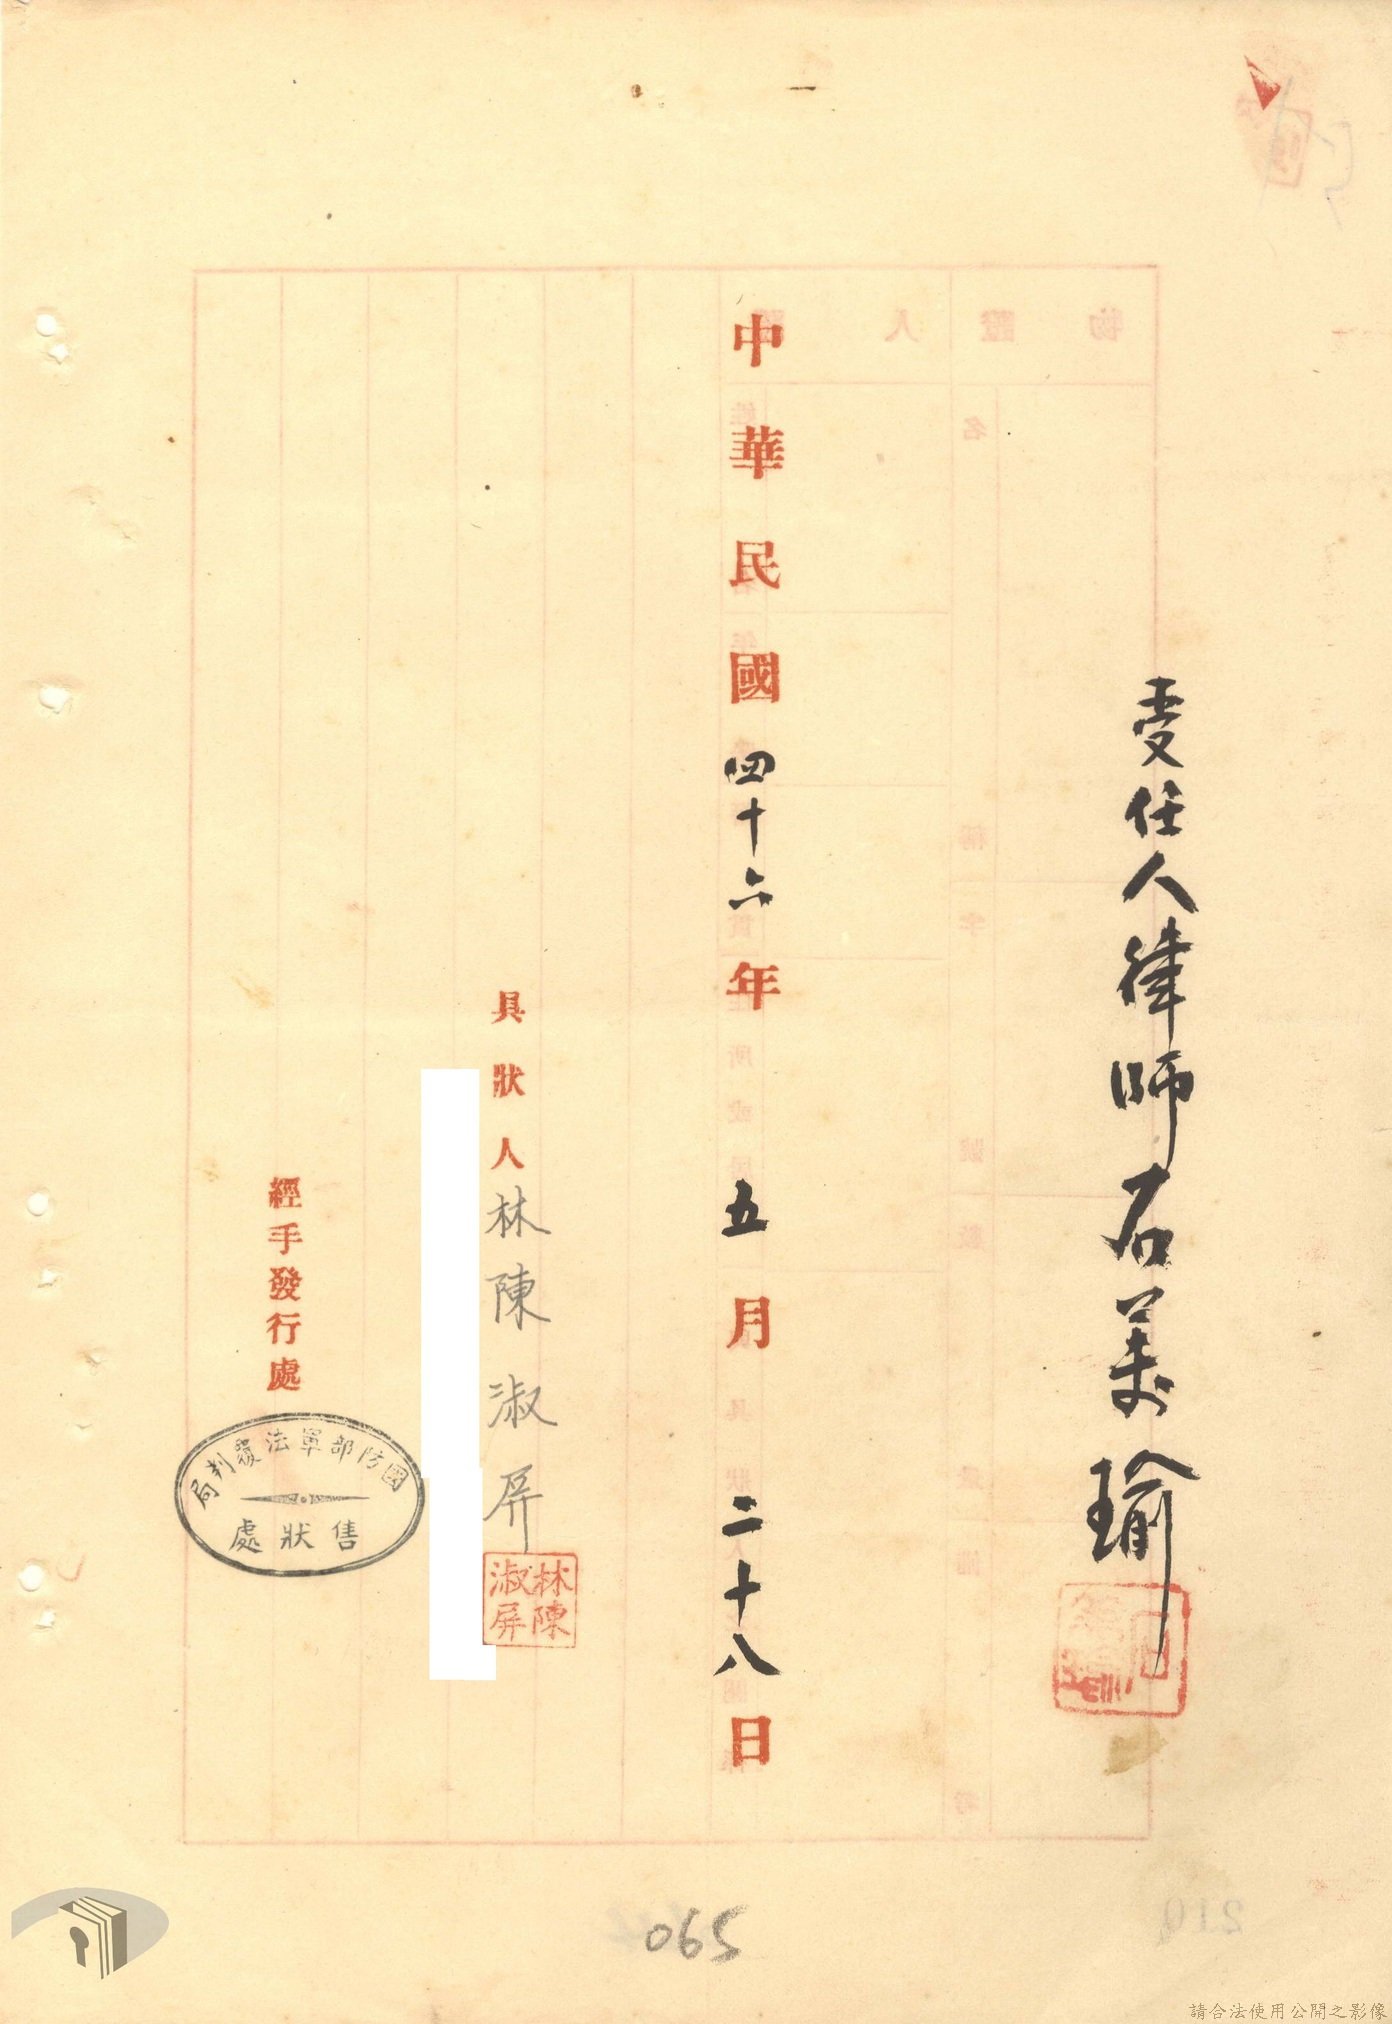 受任人律師石美瑜
中華民國四十六年五月二十八日
具狀人林陳淑屏
林陳淑屏
經手發行處
國防部軍法覆判局
售狀處
065
請合法使用公開之影像